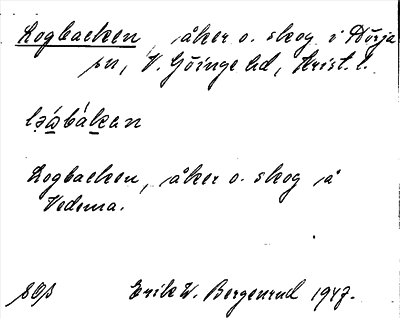 Logbacken, åker o. skog i Dörja
sn, V. Göinge hd, Krist. l.
Logbacken, åker o. skog å
Vedema.
SOS Erik W. Bergenrud 1947.